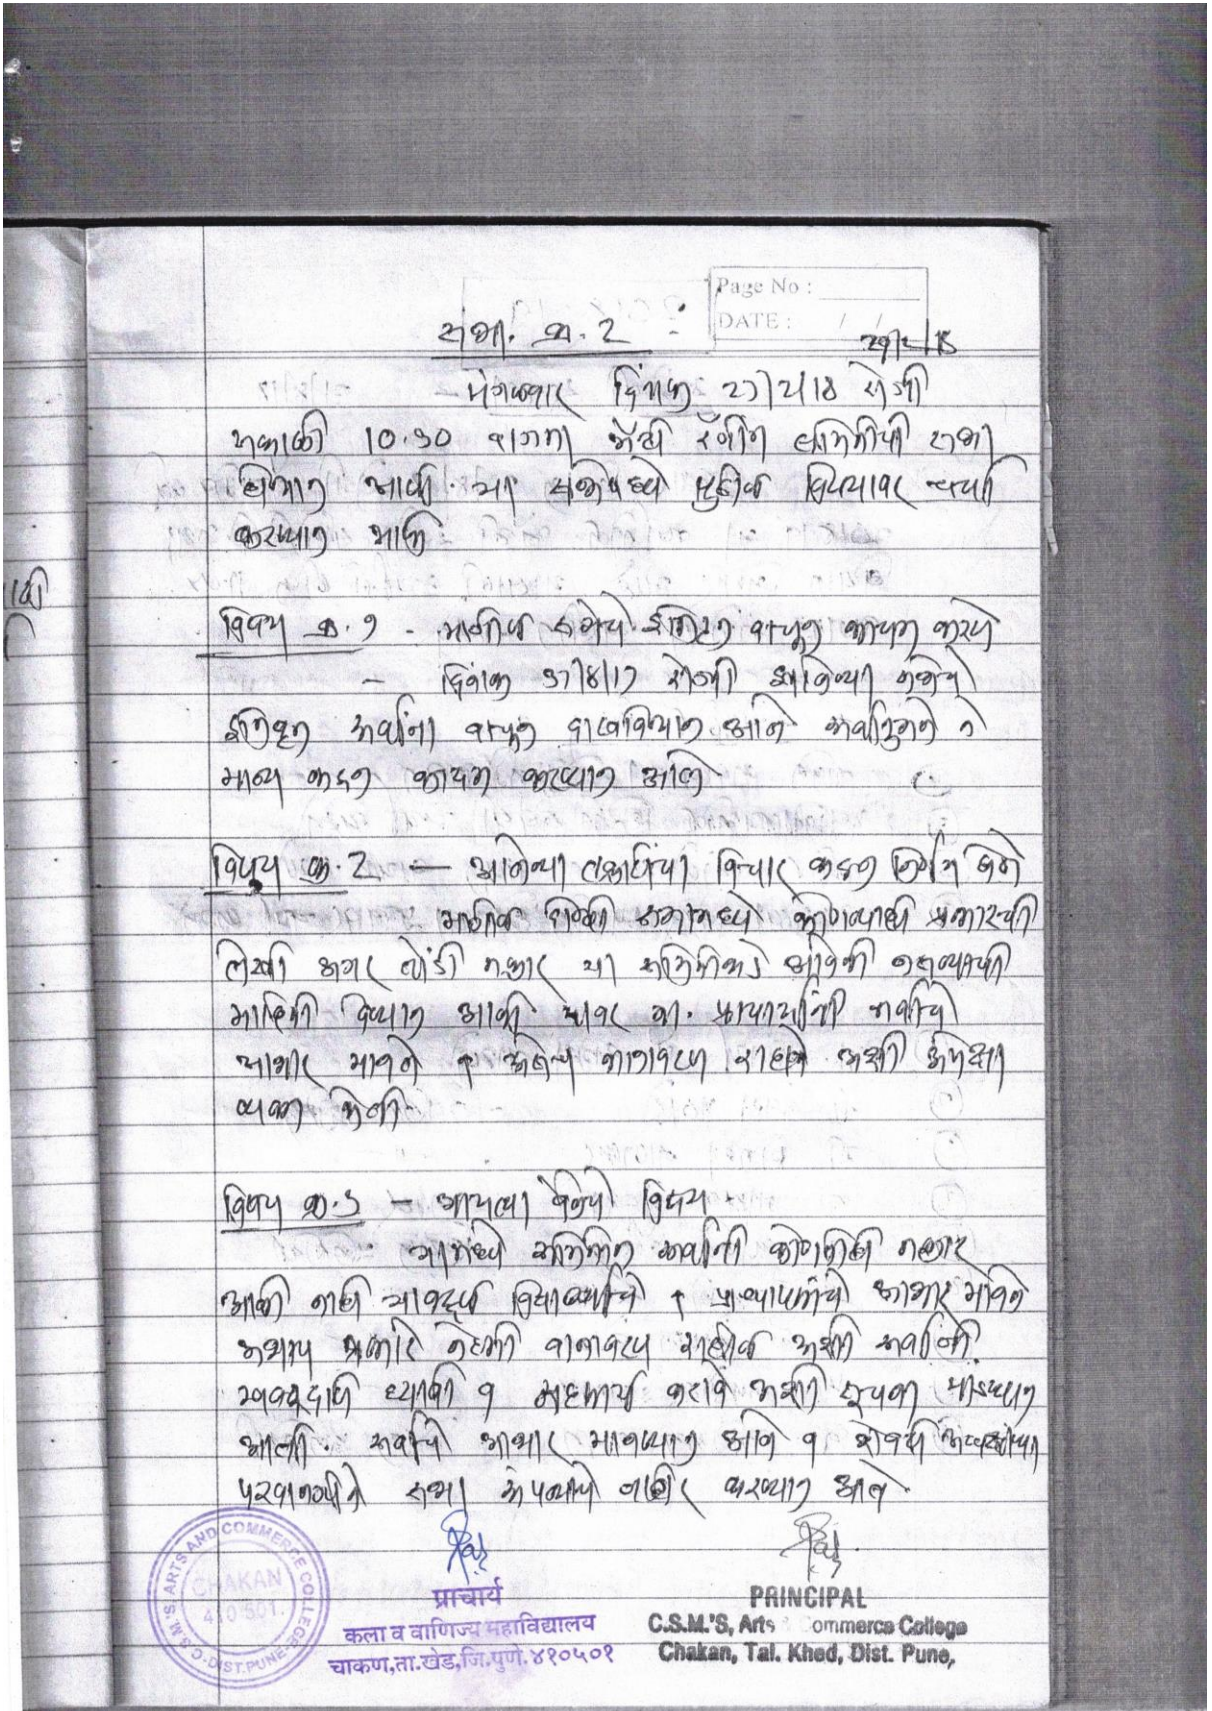 Page No :
DATE : / /
सभा. क्र. २
मंगळवार दिनांक २७/२/१८ रोजी
सकाळी १०.३० वाजता अँटी रॅगींग समितीची सभा
घेण्यात आली. या सभेमध्ये पुढील विषयावर चर्चा
करण्यात आली
विषय क्र. १ - मागील सभेचे इतिवृत्त वाचून कायम करणे
- दिनांक रोजी झालेल्या सभेचे
इतिवृत्त सर्वांना वाचून दाखविण्यात आले सर्वानुमते ते
मान्य करून कायम करण्यात आले
विषय क्र. २ — आलेल्या तक्रारींचा विचार करून निर्णय घेणे
मागील सभामध्ये कोणत्याही प्रकारची
लेखी अगर तोंडी तक्रार या समितीकडे आलेली नसल्याची
माहिती देण्यात आली. यावर मा. प्राचार्यांनी सर्वांचे
आभार मानले व असेच वातावरण राहावे अशी अपेक्षा
व्यक्त केली
विषय क्र. ३ - आयत्या वेळेचे विषय
यामध्ये समितीत सर्वांनी कोणतीही तक्रार
आली नाही याबद्दल विद्यार्थ्यांचे व प्राध्यापकांचे आभार मानले
अशाच प्रकारे नेहमी वातावरण राहील अशी सर्वांनी
खबरदारी घ्यावी व सहकार्य करावे अशी सूचना मांडण्यात
आली. सर्वांचे आभार मानण्यात आले व शेवटी अध्यक्षांच्या
परवानगीने सभा संपल्याचे जाहीर करण्यात आले.
प्राचार्य
कला व वाणिज्य महाविद्यालय
चाकण,ता.खेड,जि.पुणे.४१०५०१
PRINCIPAL
C.S.M.'S, Arts & Commerce College
Chakan, Tal. Khed, Dist. Pune,
C.S.M.'S. ARTS AND COMMERCE COLLEGE
CHAKAN
410 501.
DIST.PUNE